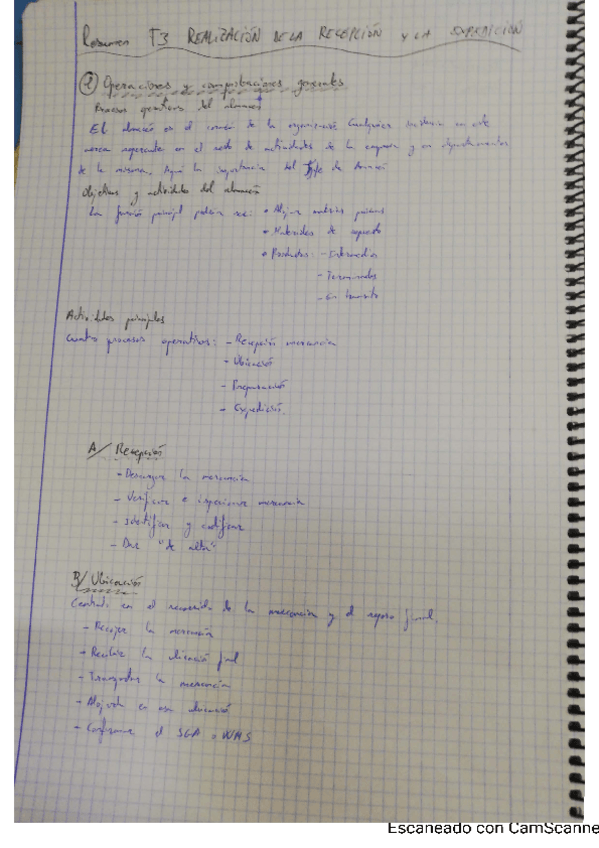 Resumen T3 REALIZACIÓN DE LA RECEPCIÓN y LA EXPEDICIÓN
Operaciones y comprobaciones generales
Procesos del almacén
El almacén es el corazón de la organización. Cualquier en este
en el resto de actividades de la empresa y en departamentos
de la misma. Aquí la importancia del Jefe de Almacén
Objetivos y actividades del almacén
La función principal pueden ser: • Alojar materias primas
• Materiales de repuesto
• Productos: - Intermedios
- Terminados
- En tránsito
Actividades principales
Cuatro procesos operativos: - Recepción mercancía
- Ubicación
- Preparación
- Expedición.
A/ Recepción
- Descargar la mercancía
- Verificar e inspeccionar mercancía
- Identificar y codificar
- Dar "de alta"
B/ Ubicación
en el recorrido de la mercancía y el reposo final.
- Recoger la mercancía
- Recibir la ubicación final
- Transportar la mercancía
- Alojarla en esa ubicación
- Confirmar el SGA o WMS
Escaneado con CamScanne